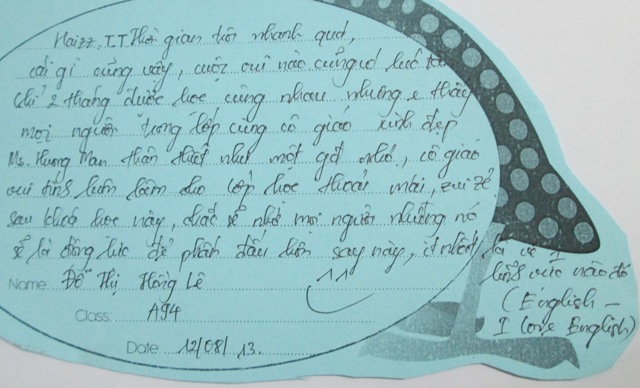 Haizz, T.T Thời gian trôi nhanh quá,
cái gì cũng vậy, cuộc vui nào cũng
chỉ 2 tháng được học cùng nhau nhưng e thấy
mọi người trong lớp cùng cô giáo xinh đẹp
Ms. Hương Man thân thiết như một gđ nhỏ, cô giáo
vui tính luôn làm cho lớp học thoải mái, zui zẻ
sau khoá học này, chắc sẽ nhớ mọi người nhưng nó
sẽ là động lực để phấn đấu hơn sau này, ít nhất là về 1
lĩnh vực nào đó
(English -
I love English)
Name Đỗ Thị Hồng Lê
Class: A94
Date 12/08/13.